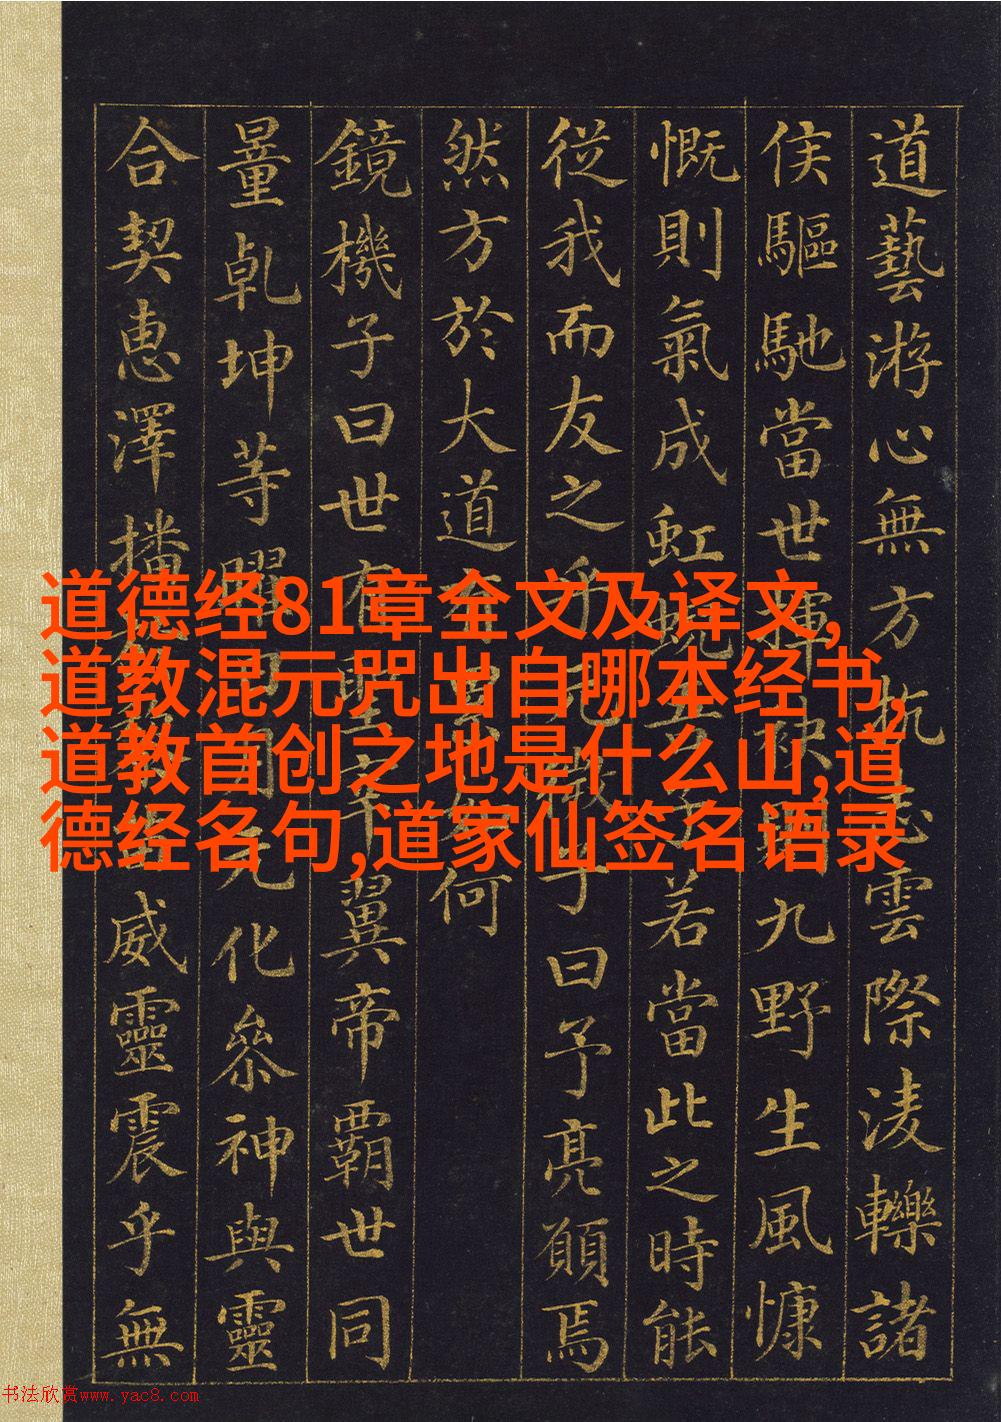 道藝游心無方抗志雲際淩轢諸
侯驅馳當世揮袂則九野生風慷
慨則氣成虹蜺吾子若當此之時能
從我而友之乎玄微子曰予亮願焉
然方於大道有累如何
鏡機子曰世有聖宰翼帝霸世同
量乾坤等曜日月玄化叅神與靈
合契惠澤播威靈震乎無
道德经81章全文及译文,
道教混元咒出自哪本经书,
道教首创之地是什么山,道
德经名句,道家仙签名语录
书法欣赏www.yac8.com